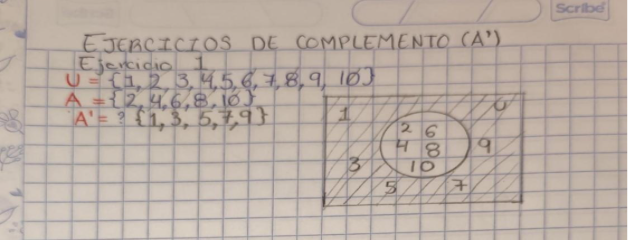 Scribe
EJERCICIOS DE COMPLEMENTO (A')
Ejercicio 1
U = {1, 2, 3, 4, 5, 6, 7, 8, 9, 10}
A = {2, 4, 6, 8, 10}
A' = ? {1, 3, 5, 7, 9}
U
1
2 6
4 8 9
3 10
5 7